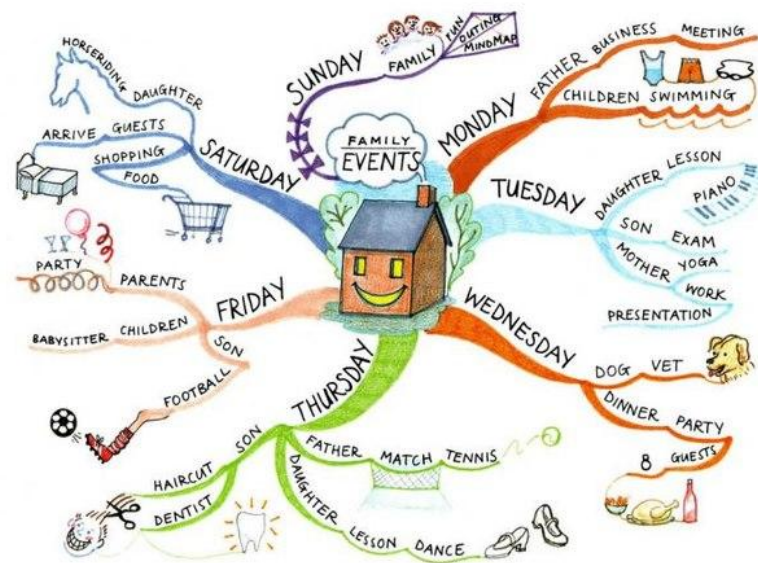 FAMILY
EVENTS
SUNDAY
FAMILY
FUN
OUTING
MINDMAP
MONDAY
FATHER BUSINESS MEETING
CHILDREN SWIMMING
TUESDAY
DAUGHTER LESSON
PIANO
SON EXAM
MOTHER YOGA
WORK
PRESENTATION
WEDNESDAY
DOG VET
DINNER PARTY
8 GUESTS
THURSDAY
FATHER MATCH TENNIS
DAUGHTER LESSON DANCE
SON
HAIRCUT
DENTIST
FRIDAY
PARENTS
PARTY
CHILDREN
BABYSITTER
SON
FOOTBALL
SATURDAY
DAUGHTER
HORSERIDING
ARRIVE GUESTS
SHOPPING
FOOD